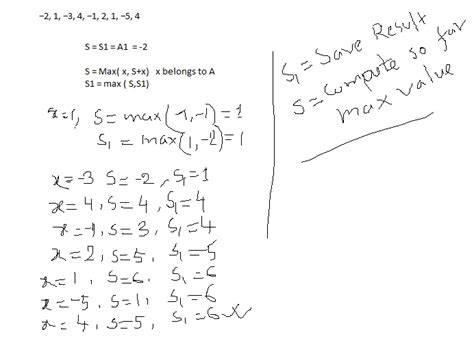 -2, 1, -3, 4, -1, 2, 1, -5, 4
S = S1 = A1 = -2
S = Max( x, S+x) x belongs to A
S1 = max ( S,S1)
x=1, S = max(1,-1)=1
S1 = max(1,-2)=1
x=-3 S=-2, S1=1
x=4, S=4, S1=4
x=-1, S=3, S1=4
x=2, S=5, S1=5
x=1, S=6, S1=6
x=-5, S=1, S1=6
x=4, S=5, S1=6
S1 = Save Result
S = Compute so far
max value